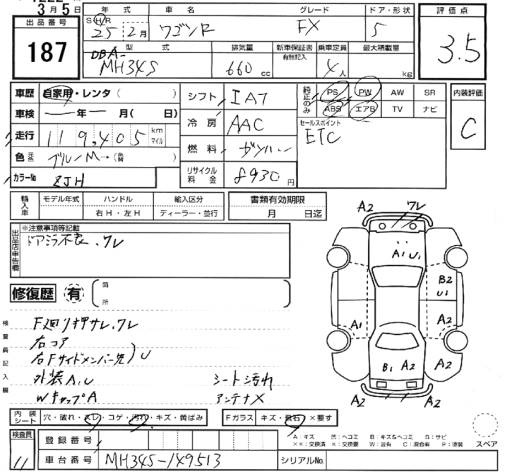 3月5日
年式 車名 グレード ドア・形状
出品番号
187
S H R
25年 2月 ワゴンR FX 5
評価点
3.5
型式 排気量 新車保証書 乗車定員 最大積載量
有無記入
DBA-
MH34S 660 cc 4人 kg
車歴 自家用・レンタ( )
車検 ー年ー月( 日)
走行 119,405 km マイル
色 ブルーM
カラーNo ZJH
シフト IAT
冷房 AAC
燃料 ガソリン
リサイクル料金 8930
純正のみ PS PW AW SR
ABS エアB TV ナビ
セールスポイント
ETC
内装評価
C
輸入車 モデル年式 ハンドル 輸入区分
右H・左H ディーラー・並行
書類有効期限
月 日迄
出品店申告欄
※注意事項等記載
ドアミラー不良、ワレ
修復歴 有
箇所
検査員記入欄
F廻り押サレ、ワレ
右コア
右Fサイドメンバー先 U
外装A,U シート汚れ
Wキャップ A アンテナX
A2 ワレ A2
A1 U1
B2
U1
A1
A2
B1 A2
A2 A2
内装シート 穴・破れ・スレ・コゲ・汚れ・キズ・黄ばみ
Fガラス キズ・飛石 ×要す
検査員 11
登録番号
車台番号 MH34S-149513
シリアルNo.
A:キズ 凹:ヘコミ B:キズ&ヘコミ G:サビ
××:交換済 ×:交換要 W:補有 C:腐食有 P:塗装
スペア